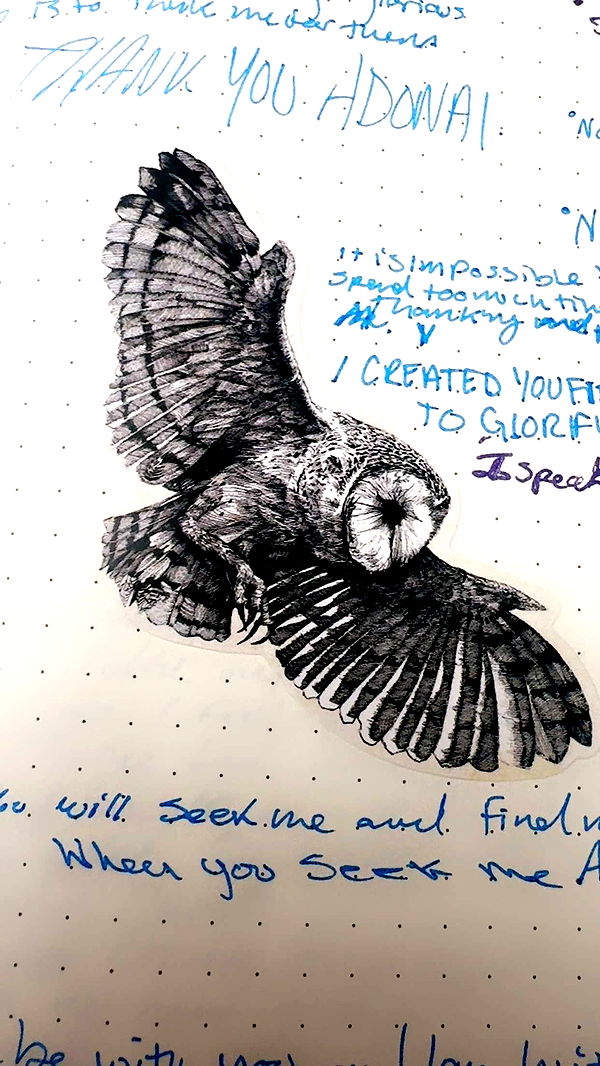 is to thank me for them
THANK YOU ADONAI
It is impossible
spend too much tim
thanking
I CREATED YOU F
TO GLORIF
I speak
You will seek me and find m
When you seek me A
be with you